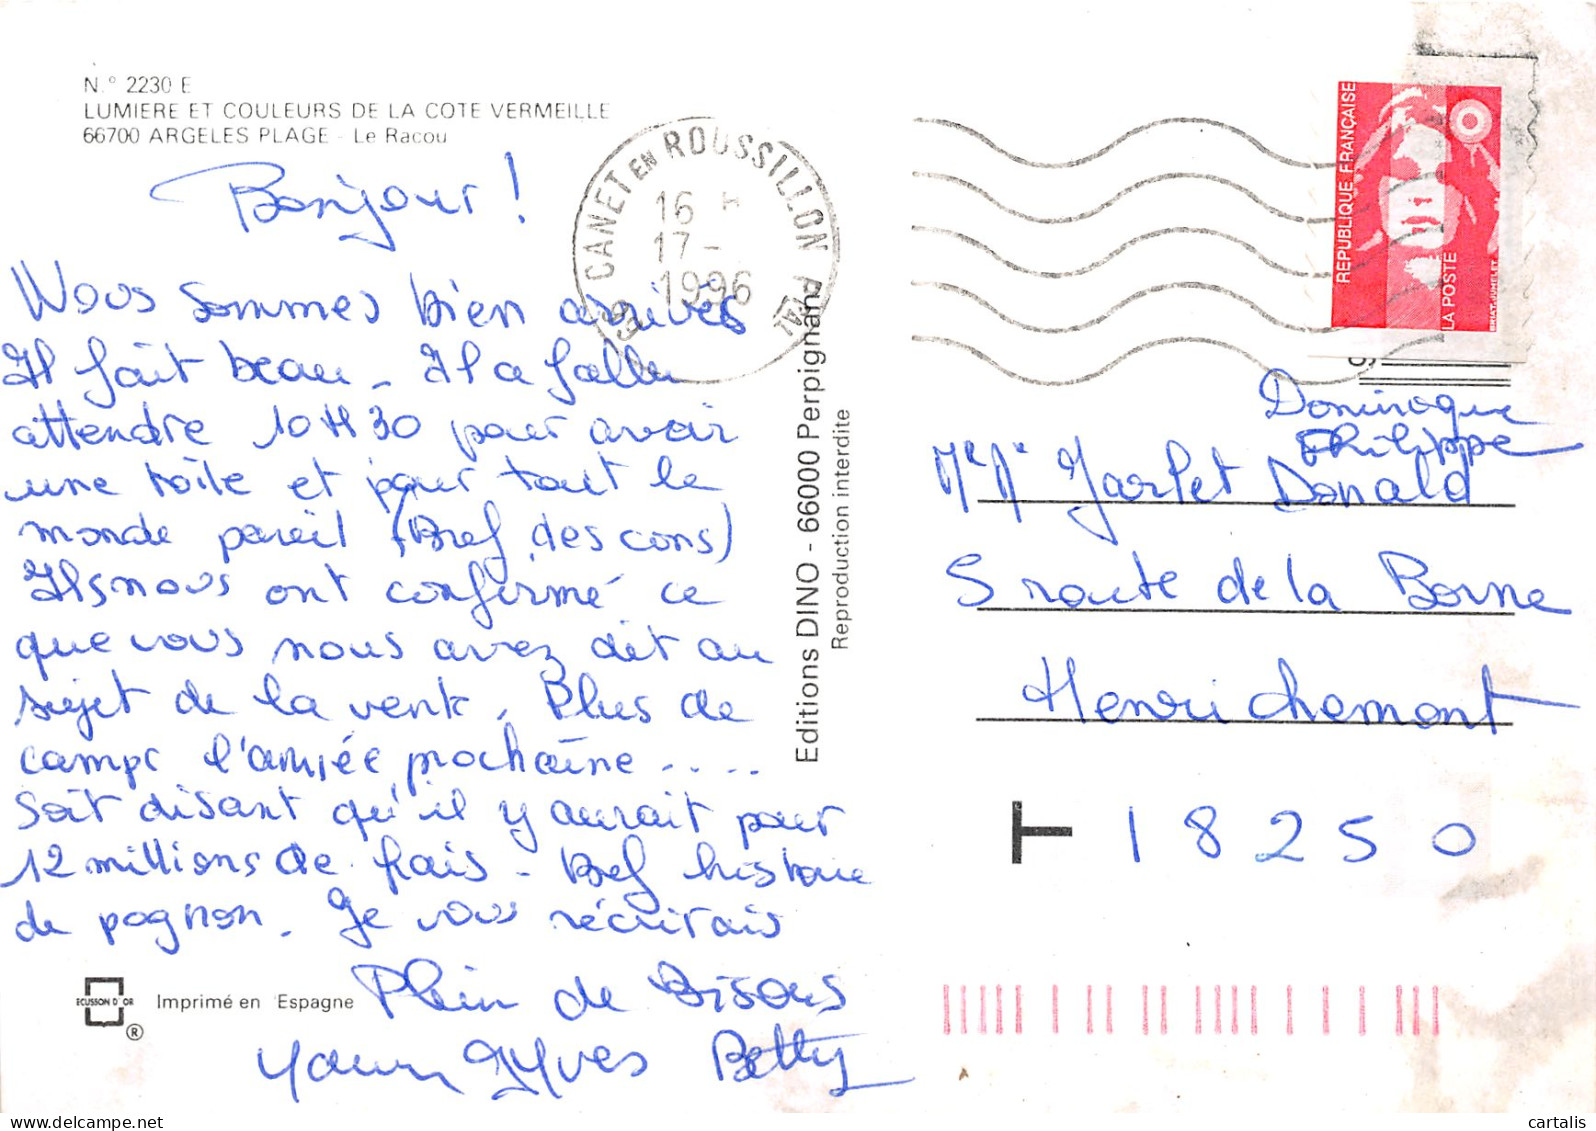 N.° 2230 E
LUMIERE ET COULEURS DE LA COTE VERMEILLE
66700 ARGELES PLAGE - Le Racou
Bonjour !
Nous sommes bien arrivés
Il fait beau - Il a fallu
attendre 10H30 pour avoir
une toile et pour tout le
monde pareil (Bref, des cons)
Ils nous ont confirmé ce
que vous nous avez dit au
sujet de la vente. Plus de
camps l'année prochaine....
Soit disant qu'il y aurait pour
12 millions de frais - Bref histoire
de pognon. Je vous réécrirais
Plein de Bisous
Yann Yves Betty
ECUSSON D'OR
® Imprimé en Espagne
Editions DINO - 66000 Perpignan
Reproduction interdite
66 CANET EN ROUSSILLON PPAL
16 H
17 -
1996
REPUBLIQUE FRANÇAISE
LA POSTE
BRIAT-JUMELET
Dominique
Philippe
Mr Me Jarlet Donald
5 route de la Borne
Henrichemont
T 18250
www.delcampe.net
cartalis